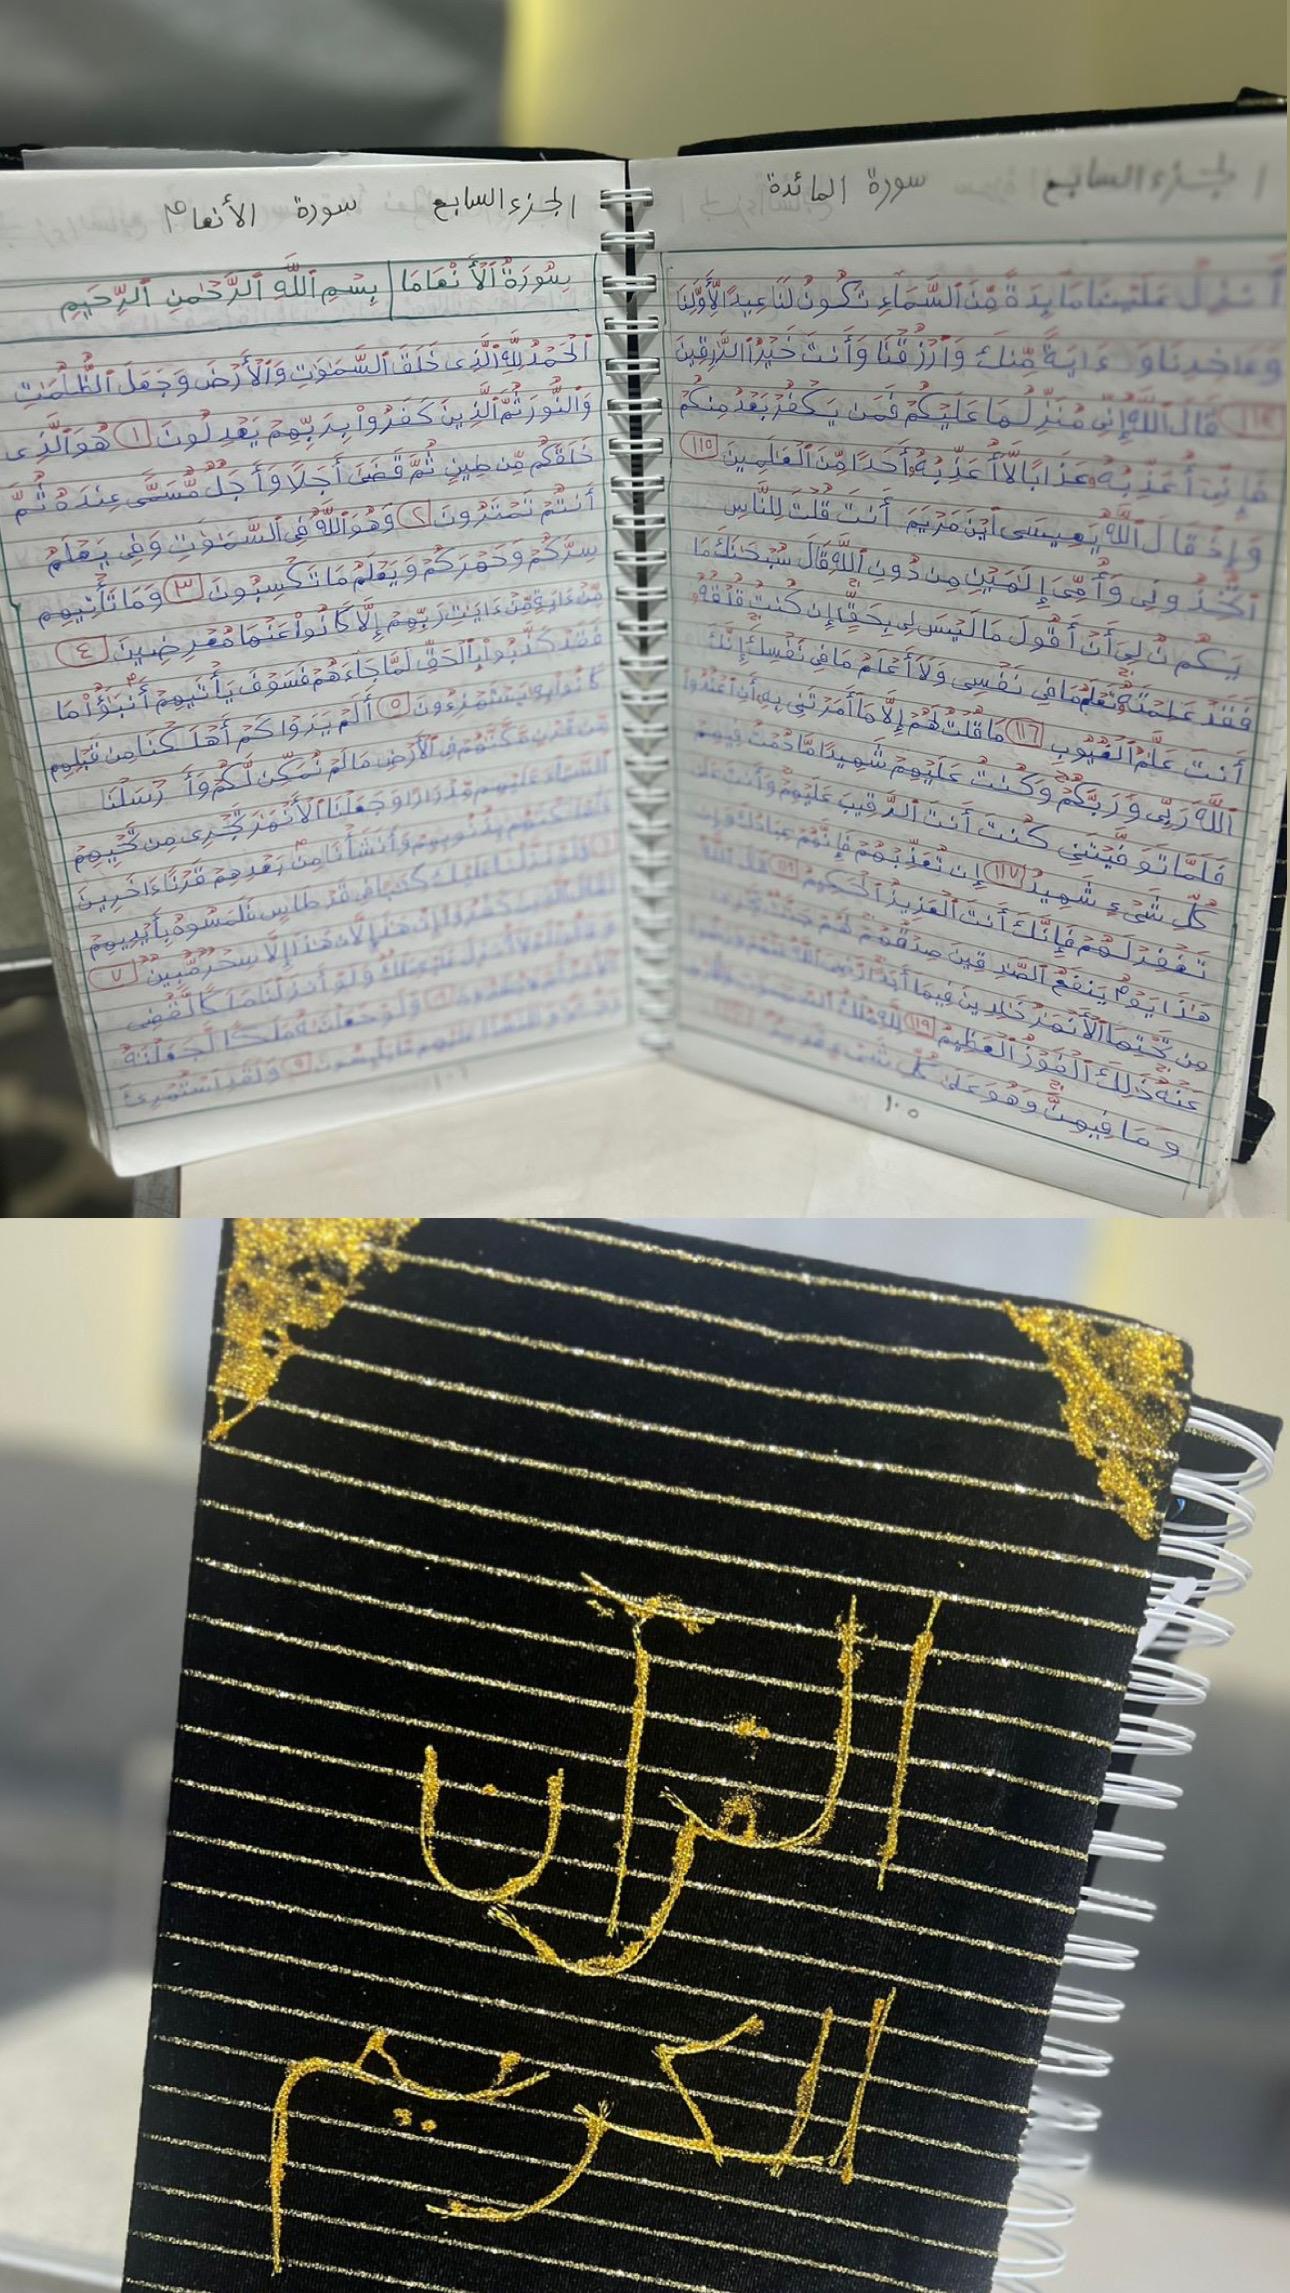 الجزء السابع سورة المائدة
أَنزِلْ عَلَيْنَا مَائِدَةً مِّنَ ٱلسَّمَاءِ تَكُونُ لَنَا عِيدًا لِّأَوَّلِنَا
وَءَاخِرِنَا وَءَايَةً مِّنكَ وَٱرْزُقْنَا وَأَنتَ خَيْرُ ٱلرَّٰزِقِينَ
١١٤ قَالَ ٱللَّهُ إِنِّى مُنَزِّلُهَا عَلَيْكُمْ فَمَن يَكْفُرْ بَعْدُ مِنكُمْ
فَإِنِّى أُعَذِّبُهُ عَذَابًا لَّا أُعَذِّبُهُ أَحَدًا مِّنَ ٱلْعَٰلَمِينَ ١١٥
وَإِذْ قَالَ ٱللَّهُ يَٰعِيسَى ٱبْنَ مَرْيَمَ أَنتَ قُلْتَ لِلنَّاسِ
ٱتَّخِذُونِى وَأُمِّىَ إِلَٰهَيْنِ مِن دُونِ ٱللَّهِ قَالَ سُبْحَٰنَكَ مَا
يَكُونُ لِى أَنْ أَقُولَ مَا لَيْسَ لِى بِحَقٍّ إِن كُنتُ قُلْتُهُ
فَقَدْ عَلِمْتَهُ تَعْلَمُ مَا فِى نَفْسِى وَلَا أَعْلَمُ مَا فِى نَفْسِكَ إِنَّكَ
أَنتَ عَلَّٰمُ ٱلْغُيُوبِ ١١٦ مَا قُلْتُ لَهُمْ إِلَّا مَا أَمَرْتَنِى بِهِ أَنِ ٱعْبُدُوا
ٱللَّهَ رَبِّى وَرَبَّكُمْ وَكُنتُ عَلَيْهِمْ شَهِيدًا مَّا دُمْتُ فِيهِمْ
فَلَمَّا تَوَفَّيْتَنِى كُنتَ أَنتَ ٱلرَّقِيبَ عَلَيْهِمْ وَأَنتَ عَلَىٰ
كُلِّ شَىْءٍ شَهِيدٌ ١١٧ إِن تُعَذِّبْهُمْ فَإِنَّهُمْ عِبَادُكَ وَإِن
تَغْفِرْ لَهُمْ فَإِنَّكَ أَنتَ ٱلْعَزِيزُ ٱلْحَكِيمُ ١١٨ قَالَ ٱللَّهُ
هَٰذَا يَوْمُ يَنفَعُ ٱلصَّٰدِقِينَ صِدْقُهُمْ لَهُمْ جَنَّٰتٌ تَجْرِى
مِن تَحْتِهَا ٱلْأَنْهَٰرُ خَٰلِدِينَ فِيهَا أَبَدًا
عَنْهُ ذَٰلِكَ ٱلْفَوْزُ ٱلْعَظِيمُ ١١٩ لِلَّهِ مُلْكُ ٱلسَّمَٰوَٰتِ
وَمَا فِيهِنَّ وَهُوَ عَلَىٰ كُلِّ شَىْءٍ قَدِيرٌ
١٠٥
الجزء السابع سورة الأنعام
سُورَةُ ٱلْأَنْعَامَا بِسْمِ ٱللَّهِ ٱلرَّحْمَٰنِ ٱلرَّحِيمِ
ٱلْحَمْدُ لِلَّهِ ٱلَّذِى خَلَقَ ٱلسَّمَٰوَٰتِ وَٱلْأَرْضَ وَجَعَلَ ٱلظُّلُمَٰتِ
وَٱلنُّورَ ثُمَّ ٱلَّذِينَ كَفَرُوا۟ بِرَبِّهِمْ يَعْدِلُونَ ١ هُوَ ٱلَّذِى
خَلَقَكُم مِّن طِينٍ ثُمَّ قَضَىٰ أَجَلًا وَأَجَلٌ مُّسَمًّى عِندَهُ ثُمَّ
أَنتُمْ تَمْتَرُونَ ٢ وَهُوَ ٱللَّهُ فِى ٱلسَّمَٰوَٰتِ وَفِى يَعْلَمُ
سِرَّكُمْ وَجَهْرَكُمْ وَيَعْلَمُ مَا تَكْسِبُونَ ٣ وَمَا تَأْتِيهِم
مِّنْ ءَايَةٍ مِّنْ ءَايَٰتِ رَبِّهِمْ إِلَّا كَانُوا۟ عَنْهَا مُعْرِضِينَ ٤
فَقَدْ كَذَّبُوا۟ بِٱلْحَقِّ لَمَّا جَاءَهُمْ فَسَوْفَ يَأْتِيهِمْ أَنۢبَٰٓؤُا۟ مَا
كَانُوا۟ بِهِ يَسْتَهْزِءُونَ ٥ أَلَمْ يَرَوْا۟ كَمْ أَهْلَكْنَا مِن قَبْلِهِم
مِّن قَرْنٍ مَّكَّنَّٰهُمْ فِى ٱلْأَرْضِ مَا لَمْ نُمَكِّن لَّكُمْ وَأَرْسَلْنَا
ٱلسَّمَاءَ عَلَيْهِم مِّدْرَارًا وَجَعَلْنَا ٱلْأَنْهَٰرَ تَجْرِى مِن تَحْتِهِمْ
فَأَهْلَكْنَٰهُم بِذُنُوبِهِمْ وَأَنشَأْنَا مِنۢ بَعْدِهِمْ قَرْنًا ءَاخَرِينَ
٦ وَلَوْ نَزَّلْنَا عَلَيْكَ كِتَٰبًا فِى قِرْطَاسٍ فَلَمَسُوهُ بِأَيْدِيهِمْ
لَقَالَ ٱلَّذِينَ كَفَرُوا۟ إِنْ هَٰذَا إِلَّا سِحْرٌ مُّبِينٌ ٧
وَلَوْ أَنزَلْنَا مَلَكًا لَّقُضِىَ
وَلَوْ جَعَلْنَٰهُ مَلَكًا لَّجَعَلْنَٰهُ
٩ وَلَقَدِ ٱسْتُهْزِئَ
١٠٦
القرآن
الكريم